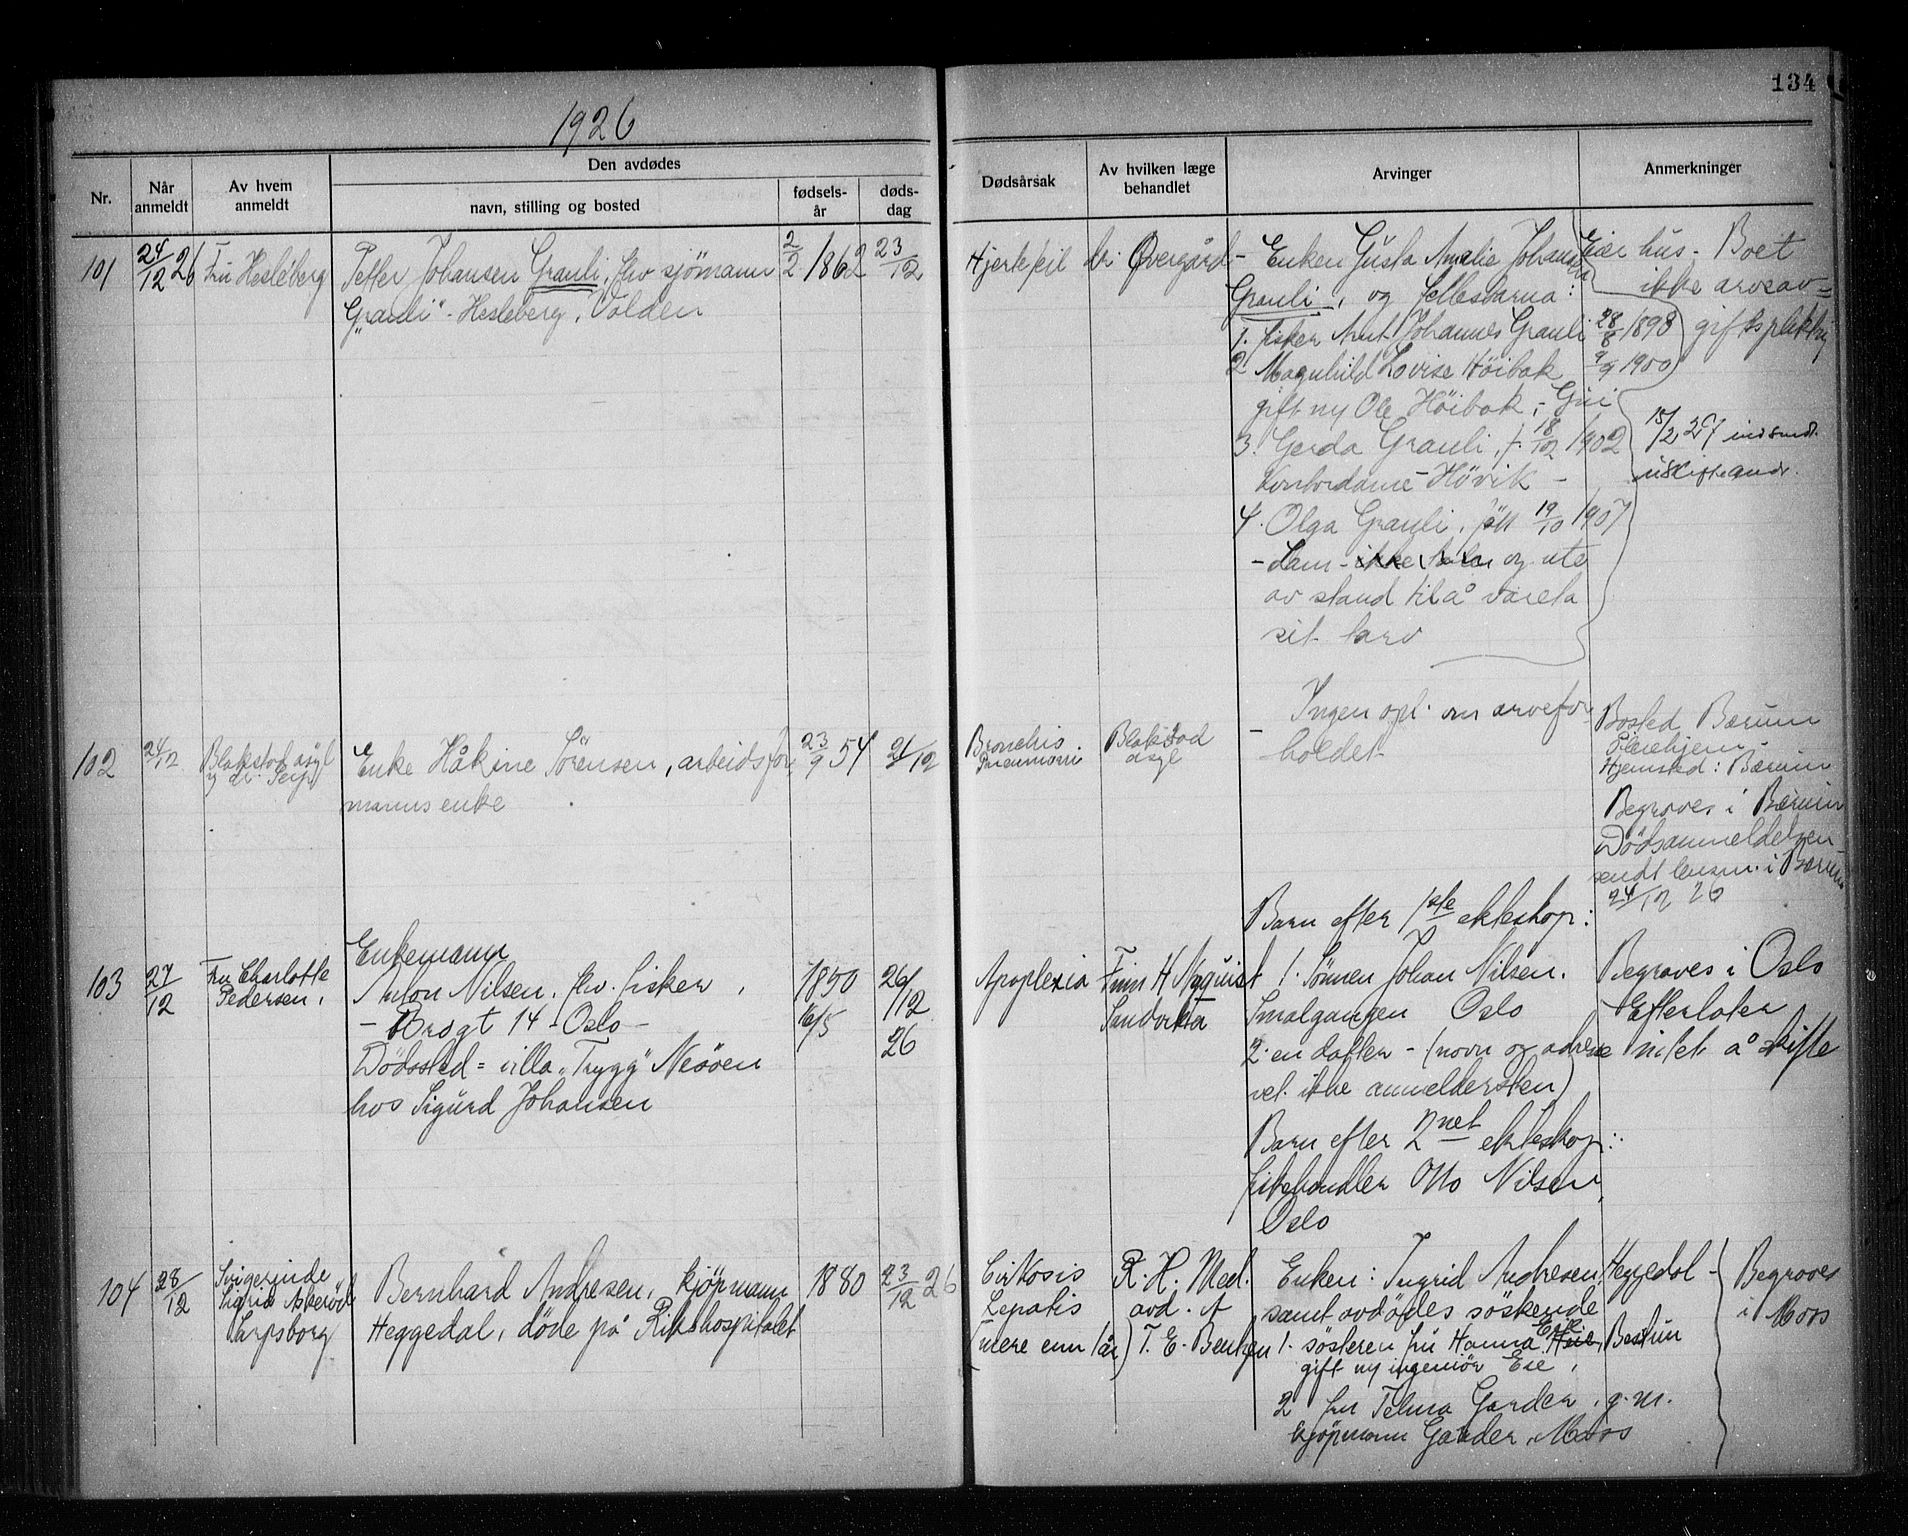 134
1926
Nr.
Når anmeldt
Av hvem anmeldt
Den avdødes
navn, stilling og bosted
fødsels-år
døds-dag
Dødsårsak
Av hvilken læge behandlet
Arvinger
Anmerkninger
101
24/12 26
Fru Hesleberg
Petter Johansen Grauli, fhv sjömann
"Grauli" - Hesleberg, Volden
2/2 1862
23/12
Hjertefeil
dr. Øvergård
- Enken Gusta Amalie Johansen
Grauli, og fellesbarna:
1. fisker Arnt Johannes Grauli 28/8 1898
2. Magnhild Lovise Höibak 9/9 1900
gift m/ Ole Höibak, -
3. Gerda Grauli, f. 18/12 1902
kontordame - Hövik -
4. Olga Grauli, född 19/10 1907
- Lam - ikke og ute
av stand til å vareta
sit tarv
Eier hus - Boet
ikke arveav=
giftspliktig
15/2 27 indsendt
uskifteandr.
102
24/12
Blakstad asyl
v/ dr.
Enke Håkine Sörensen, arbeidsfor-
manns enke
23/9 54
21/12
Bronchis
Pneumoni
Blakstad
asyl
- Ingen opl. om arvefor
holdet
Bosted Bærum
Pleiehjem -
Hjemsted: Bærum
Begraves i Bærum
Dödsanmeldelsen
sendt lensm. i Bærum
24/12 26
103
27/12
Fru Charlotte
Pedersen,
Enkemann
Anton Nilsen, fhv. fisker,
- Brogt 14 - Oslo -
Dödssted = villa "Trygg" Nesöen
hos Sigurd Johansen
1850
16/5
26/12
26
Apoplexia
Finn H. Nyquist
Sandvika
Barn efter 1ste ekteskap:
1. Sönnen Johan Nilsen.
Smalgangen Oslo
2. en datter - (navn og adresse
vet ikke anmeldersken)
Barn efter 2net ekteskap:
fiskehandler Otto Nilsen,
Oslo
Begraves i Oslo
Efterlater
intet å skifte
104
28/12
Svigerinde
Sigrid Asteröd
Sarpsborg
Bernhard Andresen, kjöpmann
Heggedal, döde på Rikshospitalet
1880
23/12 26
Cirkosis
Lepatis
(mere enn 1 år)
R. H. Med.
avd. A
T. E. Bentzen
Enken: Ingrid Andresen, Heggedal -
samt avdödes söskende
1. sösteren fru Hanna Ese, Bestun
gift m/ ingeniör Ese,
2 fru Telma Garder, g. m.
kjöpmann Garder, Moss
Begraves
i Moss